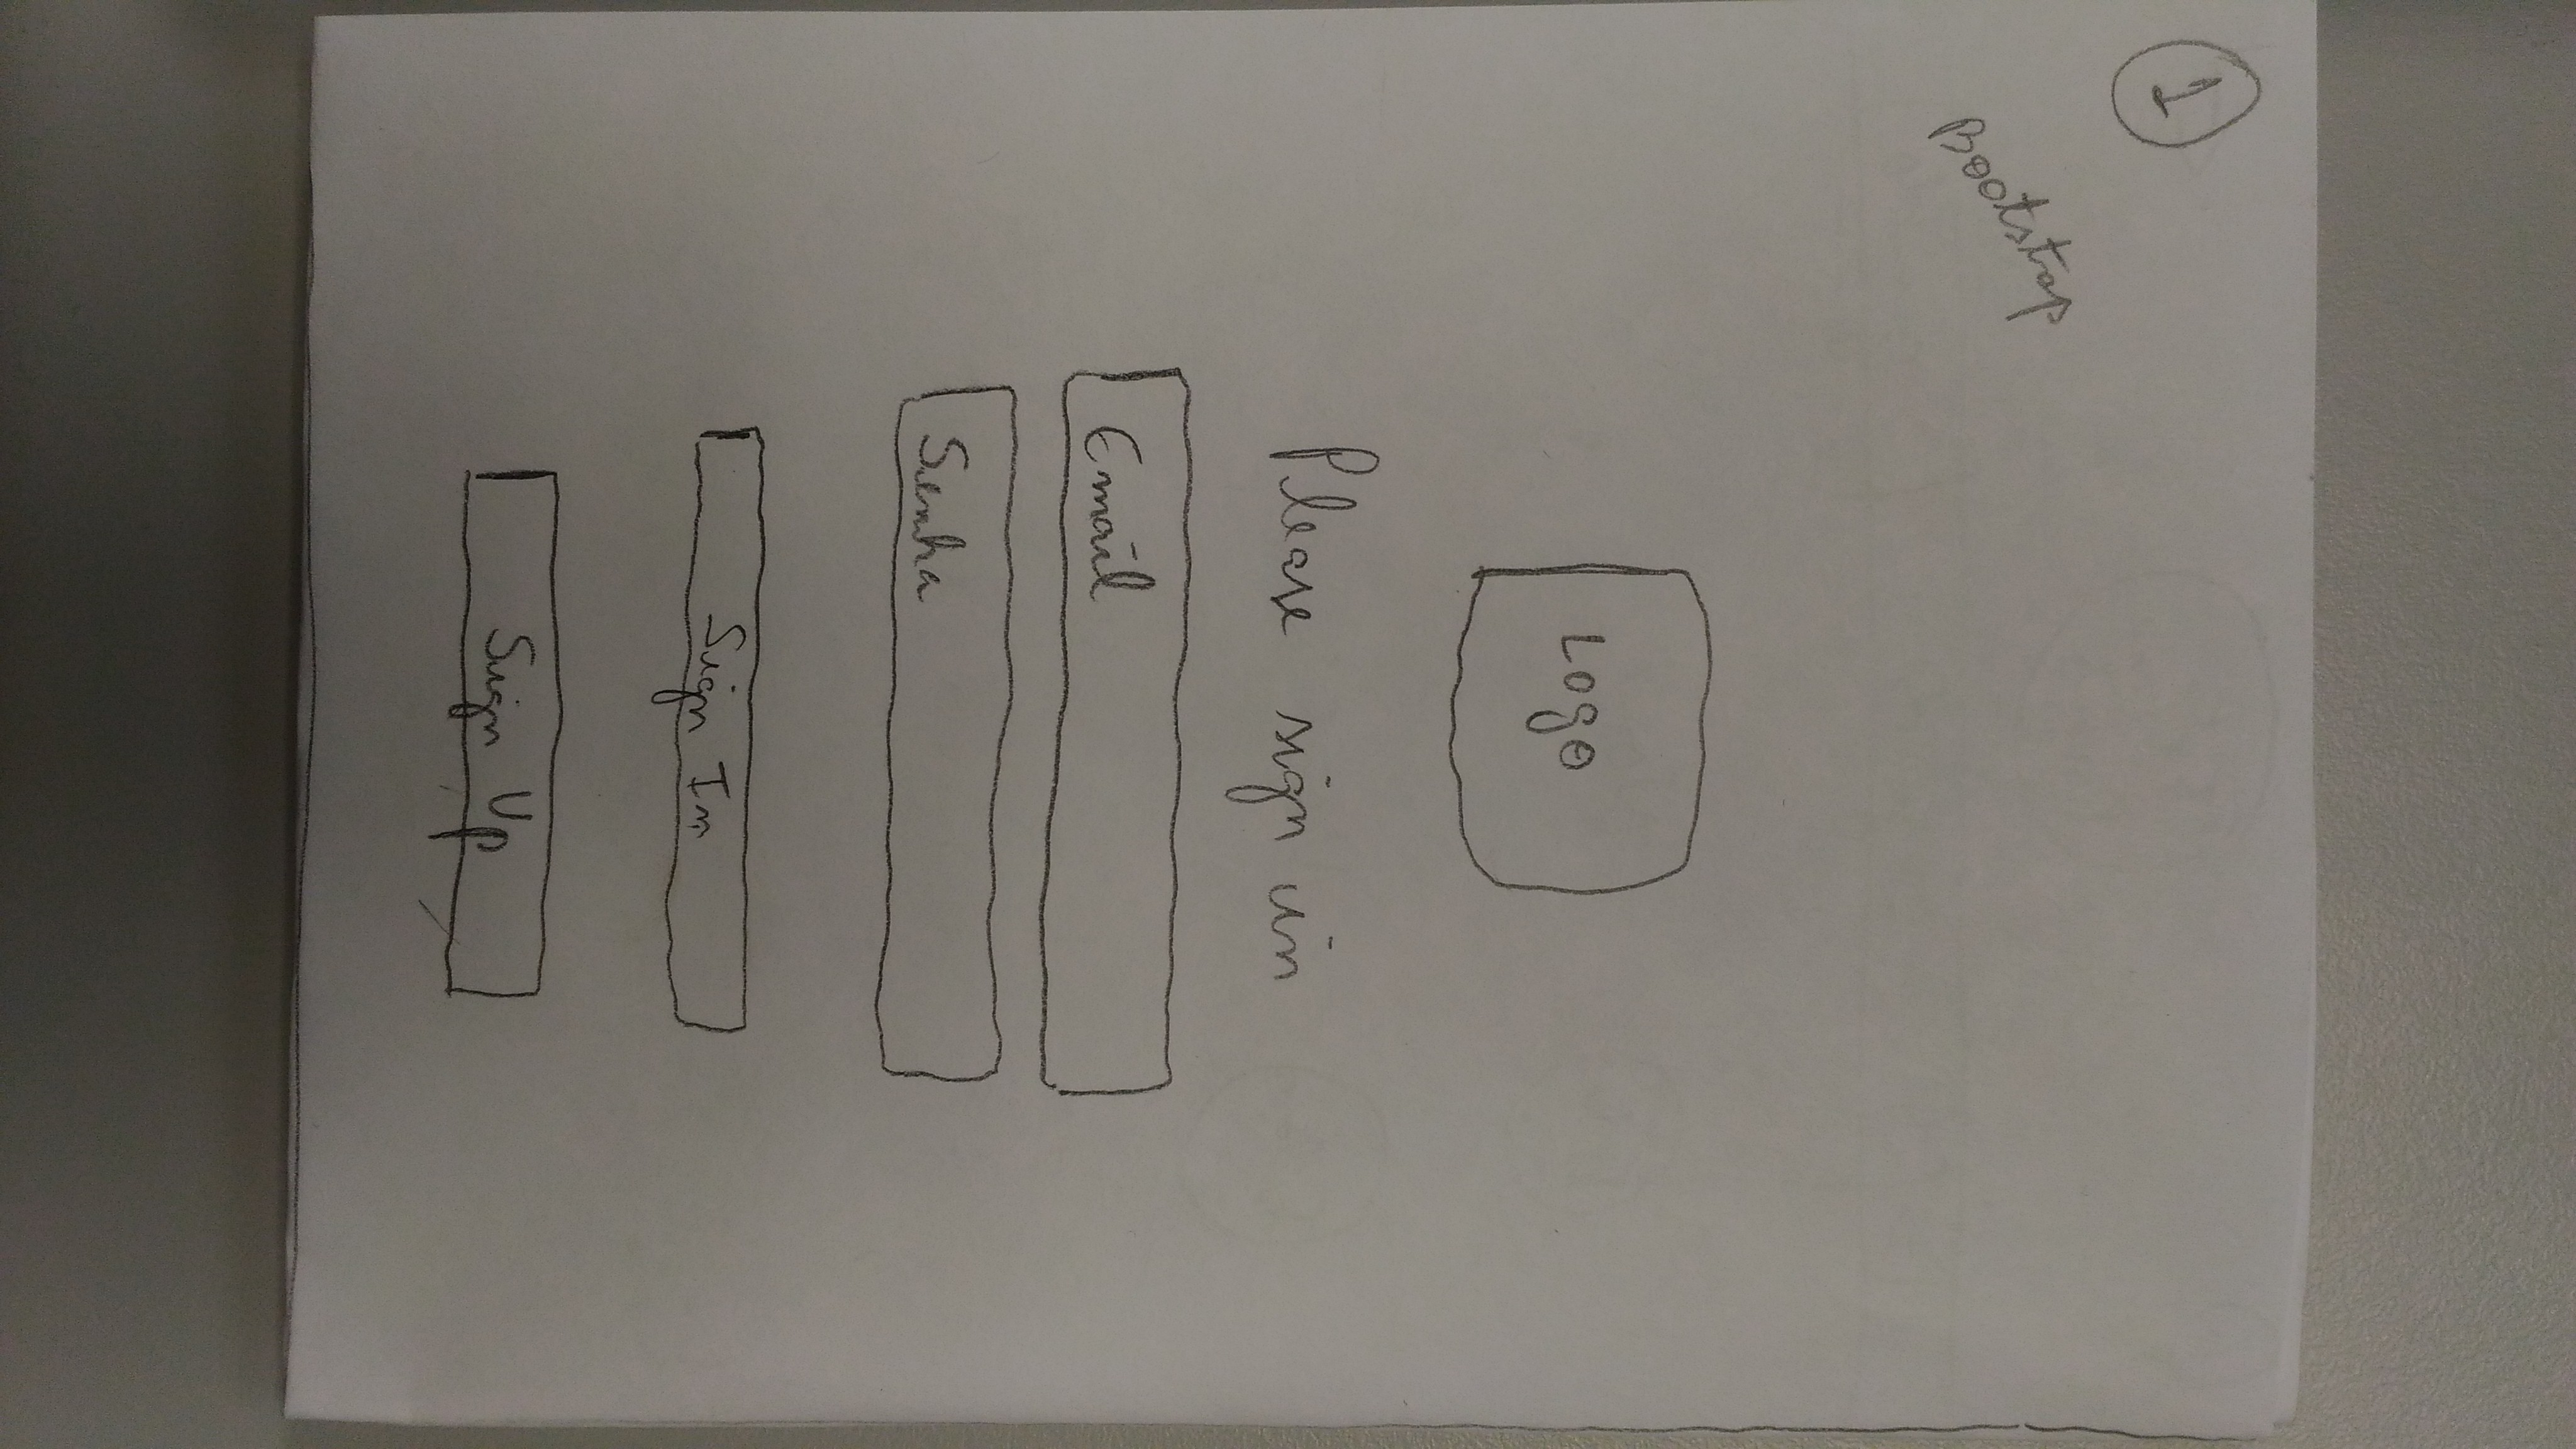 1
Bootstrap
Logo
Please sign in
Email
Senha
Sign In
Sign Up